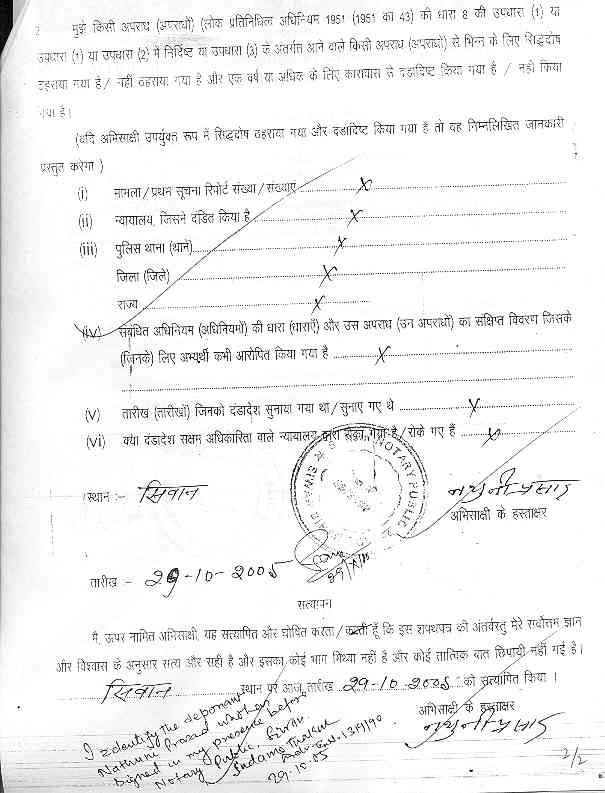 2 मुझे किसी अपराध (अपराधों) (लोक प्रतिनिधित्व अधिनियम 1951 (1951 का 43) की धारा 8 की उपधारा (1) या
उपधारा (1) या उपधारा (2) में निर्दिष्ट या उपधारा (3) के अंतर्गत आने वाले किसी अपराध (अपराधों) से भिन्न के लिए सिद्धदोष
ठहराया गया है / नहीं ठहराया गया है और एक वर्ष या अधिक के लिए कारावास से दंडादिष्ट किया गया है / नहीं किया
गया है।
(यदि अभिसाक्षी उपर्युक्त रूप में सिद्धदोष ठहराया गया और दंडादिष्ट किया गया है तो वह निम्नलिखित जानकारी
प्रस्तुत करेगा )
(i) मामला / प्रथम सूचना रिपोर्ट संख्या / संख्याएं X
(ii) न्यायालय, जिसने दंडित किया है X
(iii) पुलिस थाना (थाने) X
जिला (जिले) X
राज्य X
(iv) संबंधित अधिनियम (अधिनियमों) की धारा (धाराएँ) और उस अपराध (उन अपराधों) का संक्षिप्त विवरण जिसके
(जिनके) लिए अभ्यर्थी कभी आरोपित किया गया है X
(v) तारीख (तारीखों) जिनको दंडादेश सुनाया गया था / सुनाए गए थे X
(vi) क्या दंडादेश सक्षम अधिकारिता वाले न्यायालय द्वारा रोका गया है / रोके गए हैं X
NOTARY PUBLIC SIWAN
स्थान :- सिवान नथुनी प्रसाद
अभिसाक्षी के हस्ताक्षर
तारीख :- 29-10-2005
सत्यापन
मैं, ऊपर नामित अभिसाक्षी, यह सत्यापित और घोषित करता / करती हूँ कि इस शपथपत्र की अंतर्वस्तु मेरे सर्वोत्तम ज्ञान
और विश्वास के अनुसार सत्य और सही है और इसका कोई भाग मिथ्या नहीं है और कोई तात्विक बात छिपायी नहीं गई है।
सिवान स्थान पर आज तारीख 29-10-2005 को सत्यापित किया ।
अभिसाक्षी के हस्ताक्षर
नथुनी प्रसाद
I identify the deponent
Nathuni Prasad who has
signed in my presence before
Notary Public, Siwan.
Sudama Thakur
29.10.05
2/2